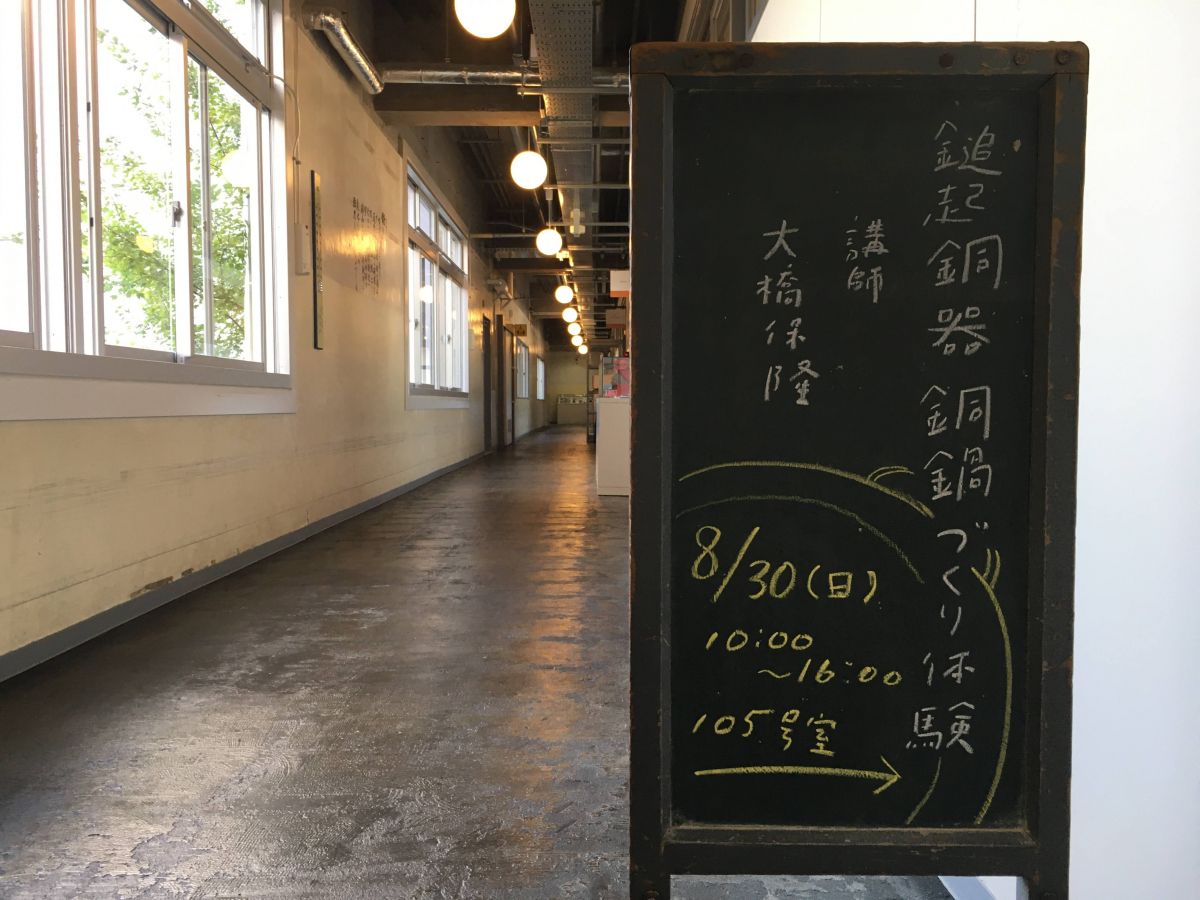 鎚起銅器 銅鍋づくり体験
講師
大橋保隆
8/30(日)
10:00
～16:00
105号室